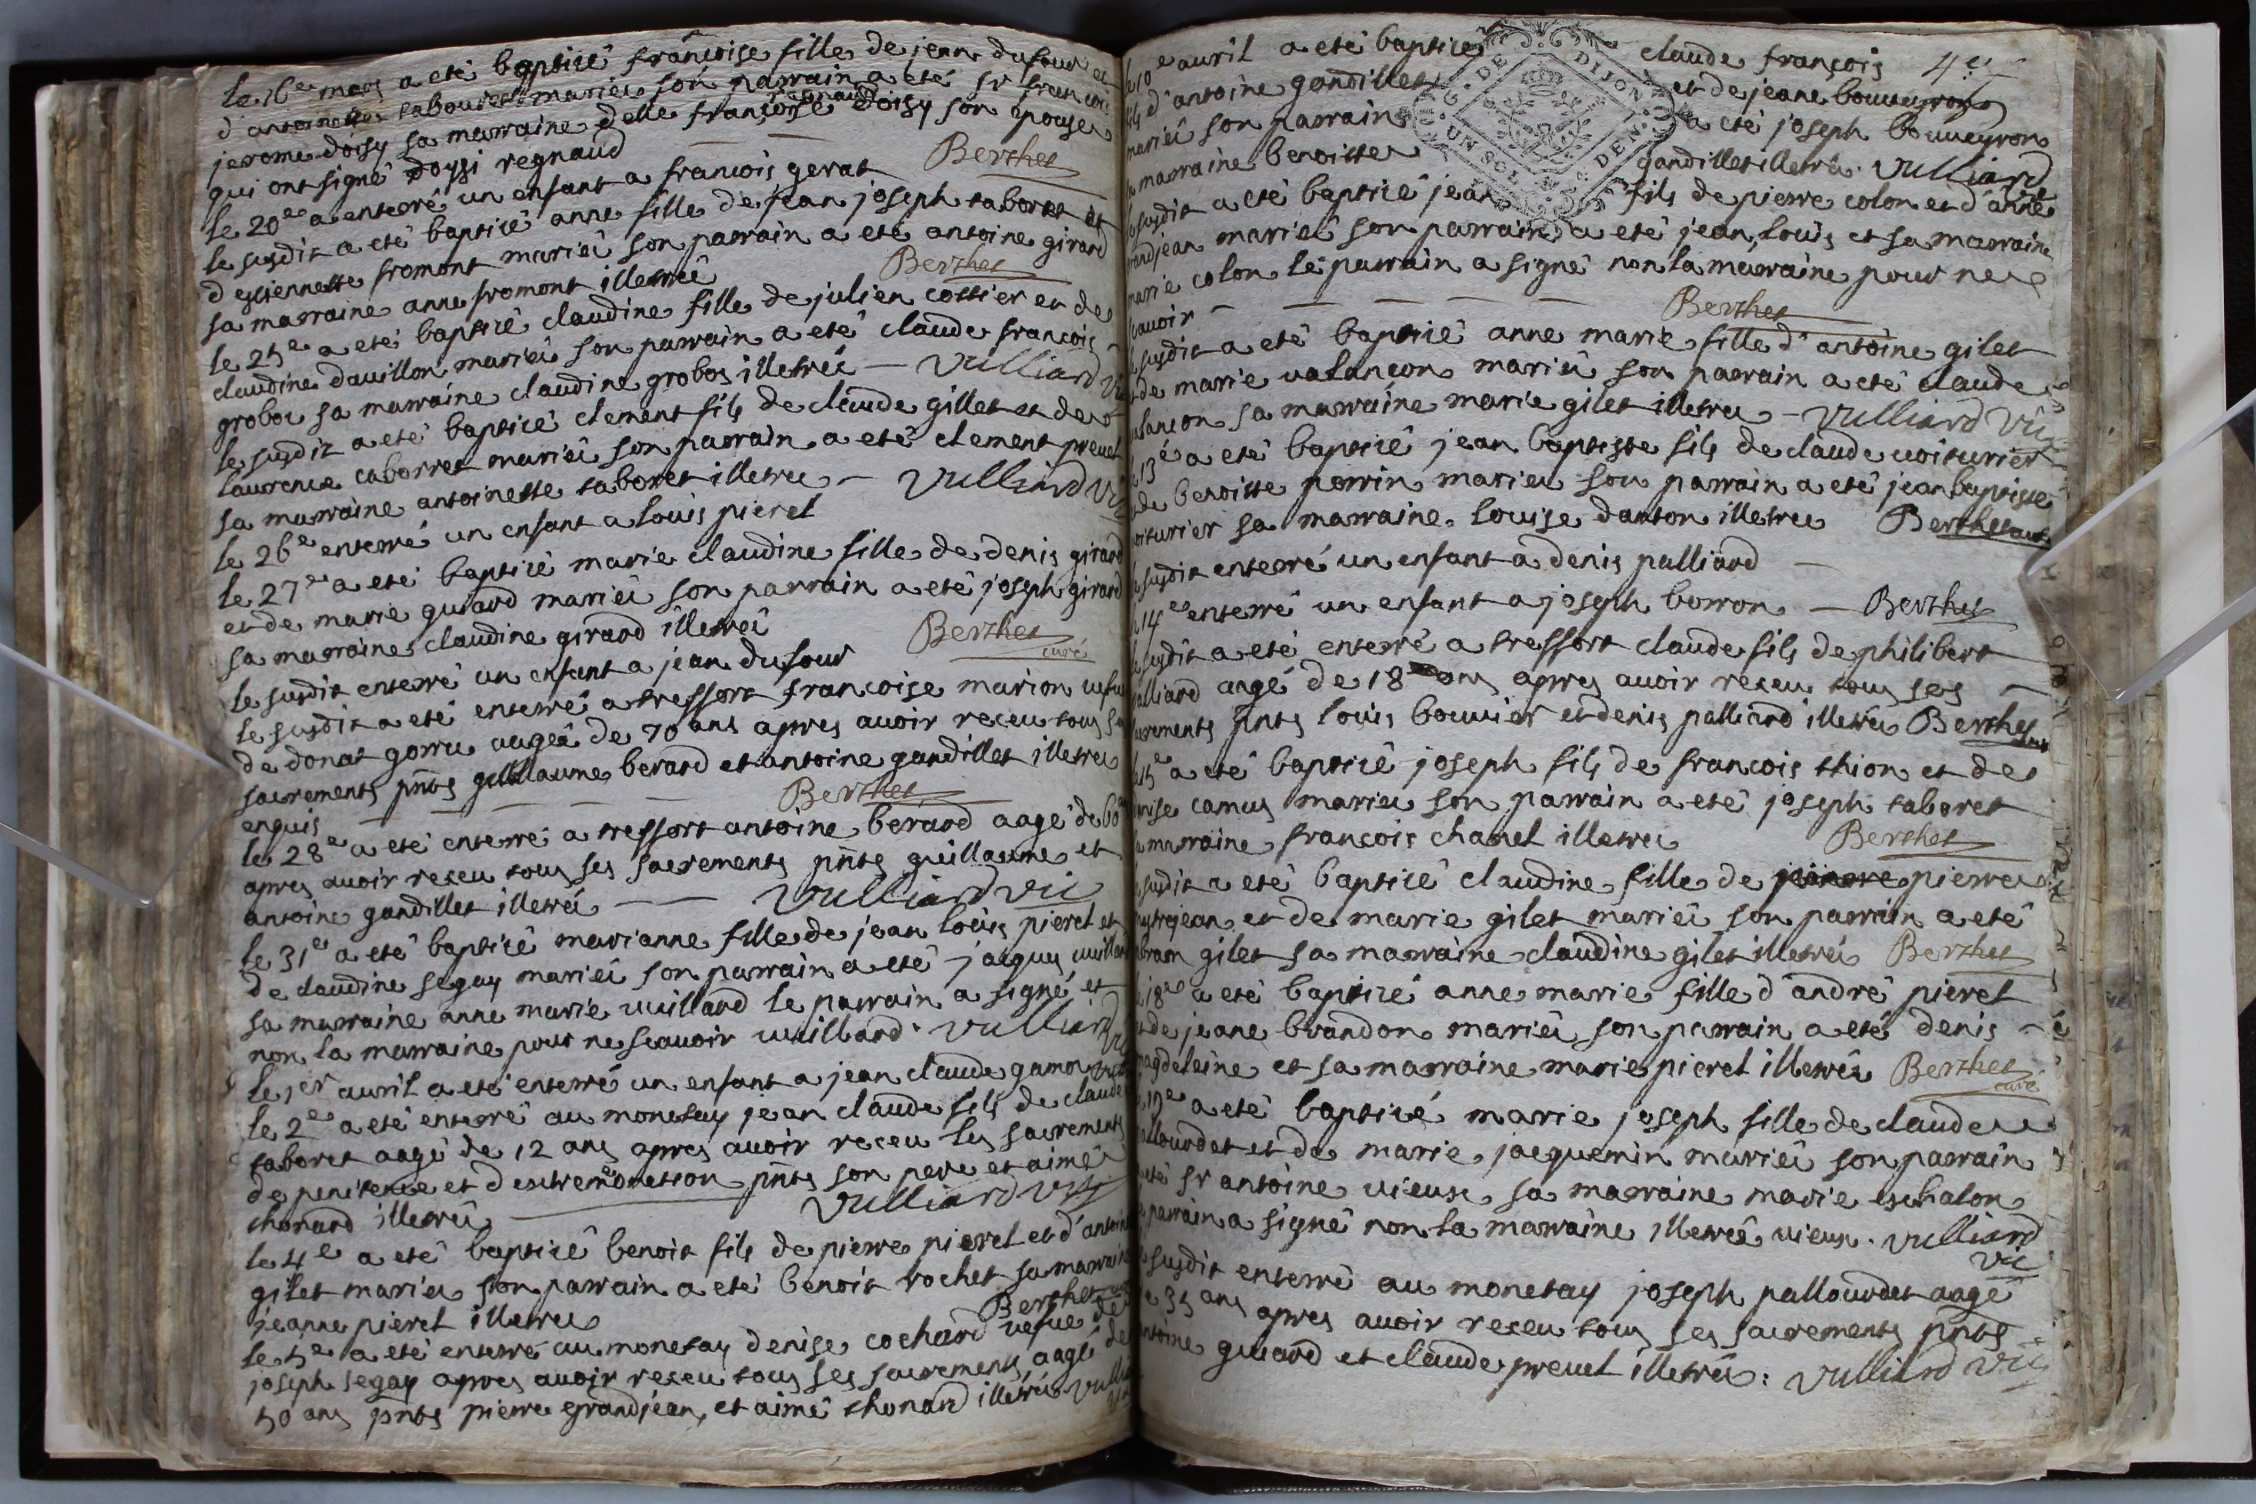 le 16e mars a eté baptizé françoise fille de jean dufour et
d'antoinette tabouret mariés son parrain a eté sr francois
jerome doisy sa marraine delle françoise regnaud doisy son epouse
qui ont signé doysi regnaud Berthet
le 20e a enterré un enfant a francois gerat
le susdit a eté baptizé anne fille de jean joseph taboret et
d'estiennette fromont mariéi son parrain a eté antoine girard
sa marraine anne fromont illetréi Berthet
le 25e a eté baptizé claudine fille de julien cottier et de
claudine dauillon mariéi son parrain a eté claude francois
groboz sa marraine claudine grobos illetréi — Vulliard
le susdit a eté baptizé clement fils de claude gillet et de
laurence taborret mariéi son parrain a eté clement preuel
sa marraine antoinette taboret illetrei — Vulliard Vic
le 26e enterré un enfant a louis pierel
le 27e a eté baptizé marie claudine fille de denis girard
et de marie guiard mariéi son parrain a eté joseph girard
sa marraine claudine girard illetréi Berthet curé
le susdit enterré un enfant a jean dufour
le susdit a eté enterré a tressort francoise marion uefue
de donat gorru aageé de 70 ans apres auoir receu tous ses
sacrements pnts guillaume berard et antoine gandillet illetrei
enquis — Berthet
le 28e a eté enterré a tressort antoine berard aagé de 60
apres auoir receu tous ses sacrements pnts guillaume et
antoine gandillet illetréi — Vulliard Vic
le 31e a eté baptizé marianne fille de jean louis pierel et
de claudine segay mariéi son parrain a eté jacques uuillard
sa marraine anne marie uuillard le parrain a signé et
non la marraine pour ne scauoir uuillard. Vulliard
le jer auril a eté enterré un enfant a jean claude gamon
le 2e a eté enterré au monetay jean claude fils de claude
taboret aagé de 12 ans apres auoir receu les sacrements
de penitence et d'extremeonction pnts son pere et aimé
chonard illetréi Vulliard Vic
le 4e a eté baptizé benoit fils de pierre pierel et d'antoine
gilet mariéi son parrain a eté benoit rochet sa marraine
jeanne pierel illetrei Berthet
le 5e a eté enterré au monetay denise cochard uefue de
joseph segay apres auoir receu tous ses sacrements aagé de
50 ans pnts pierre grandjean, et aimé chonard illetréi Vulliard
le 10e auril a eté baptizé claude françois 4e
fils d'antoine gandillet et de jeane bouueyron
mariéi son parrain a eté joseph bouueyron
sa marraine benoitte gandillet illetrei. Vulliard
G. DE DIJON
UN SOL
DEN.
le susdit a eté baptizé jean fils de pierre colon et d'anne
grandjean mariéi son parrain a eté jean, louis et sa marraine
marie colon le parrain a signé non la marraine pour ne
scauoir — Berthet
le susdit a eté baptizé anne marie fille d'antoine gilet
et de marie ualancon mariéi son parrain a eté claude
ualancon sa marraine marie gilet illetrei — Vulliard Vic
le 13e a eté baptizé jean baptiste fils de claude uoiturier
et de benoitte perrin mariei son parrain a eté jean baptiste
uoiturier sa marraine louise danton illetrei Berthet curé
le susdit enterré un enfant a denis palliard —
le 14e enterré un enfant a joseph borron — Berthet
le susdit a eté enterré a tressort claude fils de philibert
palliard aagé de 18 ans apres auoir receu tous ses
sacrements pnts louis bouuier et denis palliard illetréi Berthet
le 15e a eté baptizé joseph fils de francois thion et de
denise camus mariei son parrain a eté joseph taboret
sa marraine francois chanel illetrei Berthet
le susdit a eté baptizé claudine fille de pierre
maytrejean et de marie gilet mariéi son parrain a eté
abram gilet sa marraine claudine gilet illetréi Berthet
le 18e a eté baptizé anne marie fille d'andré pierel
et de jeane brandon mariéi son parrain a eté denis
magdeleine et sa marraine marie pierel illetréi Berthet curé
le 19e a eté baptizé marie joseph fille de claude
pallourdet et de marie jacquemin mariéi son parrain
a eté sr antoine uieux sa marraine marie eschalon
le parrain a signé non la marraine illetréé uieux. Vulliard Vic
le susdit enterré au monetay joseph pallourdet aagé
de 35 ans apres auoir receu tous ses sacrements pnts
antoine guiard et claude preuel illetréi: Vulliard Vic